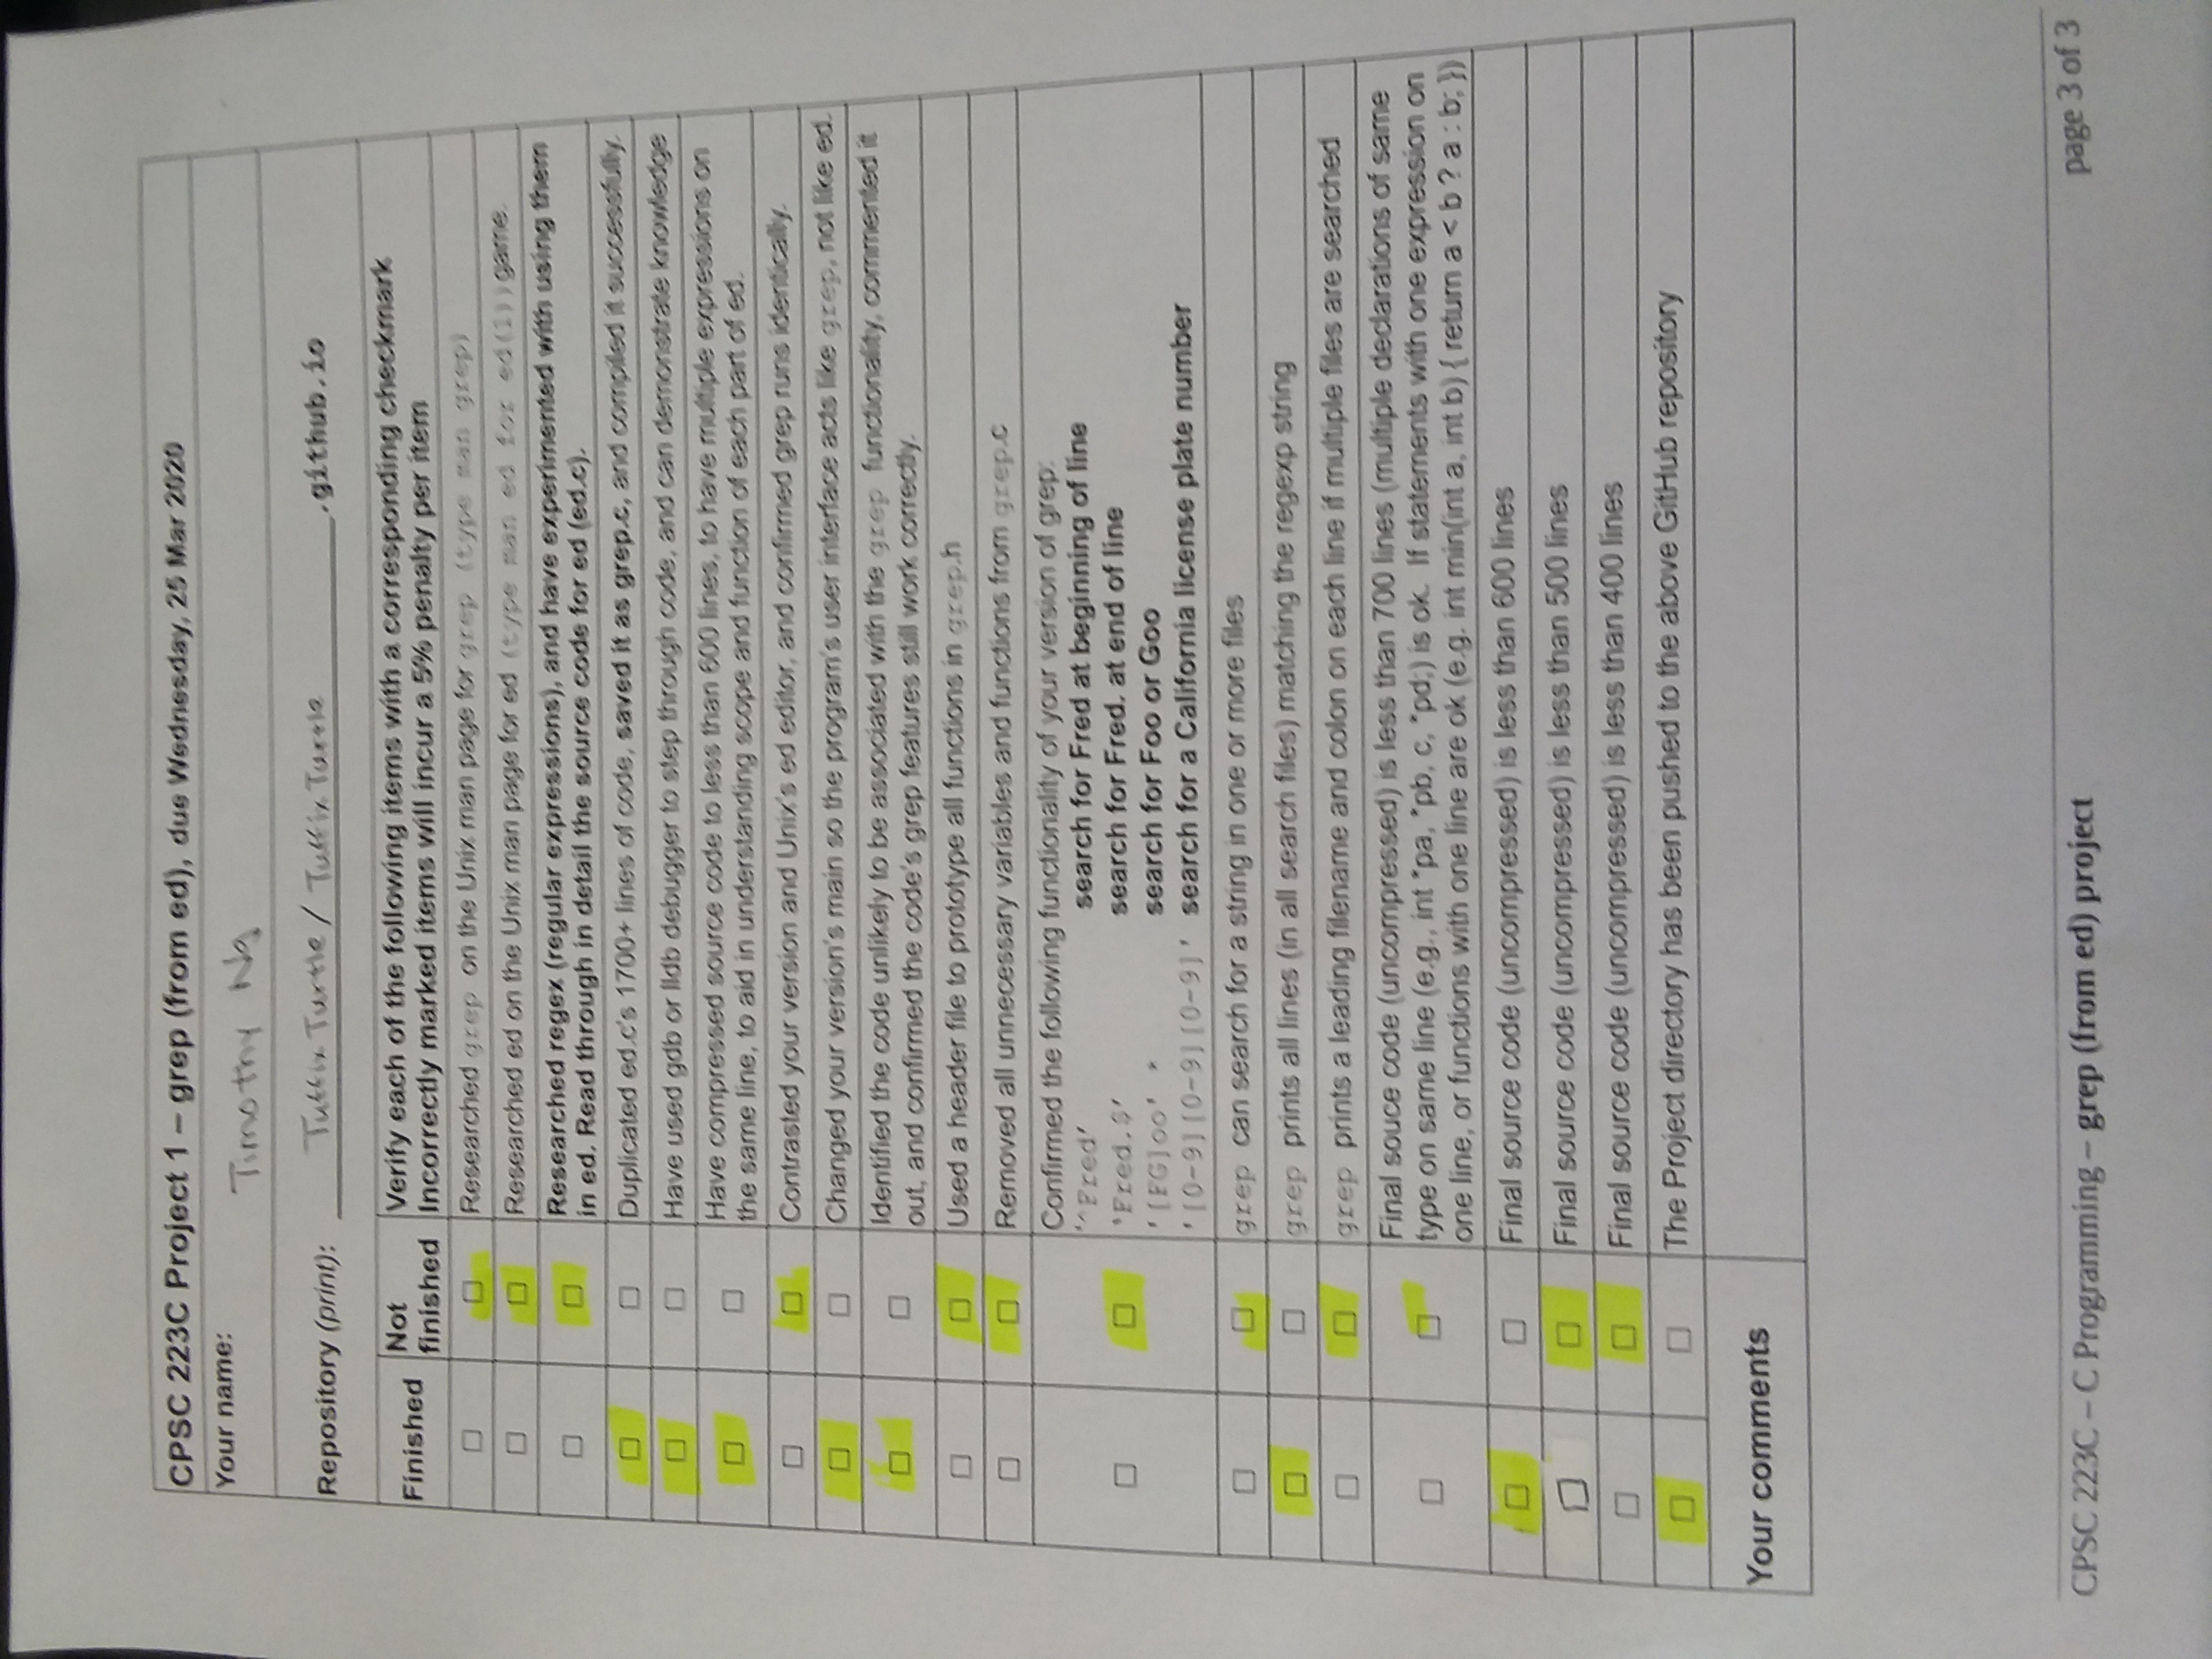 CPSC 223C Project 1 – grep (from ed), due Wednesday, 25 Mar 2020
Your name: Timothy Ng
Repository (print): Tuffix Turtle / Tuffix Turtle .github.io
Finished Not finished Verify each of the following items with a corresponding checkmark
Incorrectly marked items will incur a 5% penalty per item
Researched grep on the Unix man page for grep (type man grep)
Researched ed on the Unix man page for ed (type man ed for ed(1)) game.
Researched regex (regular expressions), and have experimented with using them
in ed. Read through in detail the source code for ed (ed.c).
Duplicated ed.c's 1700+ lines of code, saved it as grep.c, and compiled it successfully.
Have used gdb or lldb debugger to step through code, and can demonstrate knowledge
Have compressed source code to less than 600 lines, to have multiple expressions on
the same line, to aid in understanding scope and function of each part of ed.
Contrasted your version and Unix's ed editor, and confirmed grep runs identically.
Changed your version's main so the program's user interface acts like grep, not like ed.
Identified the code unlikely to be associated with the grep functionality, commented it
out, and confirmed the code's grep features still work correctly.
Used a header file to prototype all functions in grep.h
Removed all unnecessary variables and functions from grep.c
Confirmed the following functionality of your version of grep:
'^Fred' search for Fred at beginning of line
'Fred.$' search for Fred. at end of line
'[FG]oo' * search for Foo or Goo
'[0-9][0-9][0-9]' search for a California license plate number
grep can search for a string in one or more files
grep prints all lines (in all search files) matching the regexp string
grep prints a leading filename and colon on each line if multiple files are searched
Final souce code (uncompressed) is less than 700 lines (multiple declarations of same
type on same line (e.g., int *pa, *pb, c, *pd;) is ok. If statements with one expression on
one line, or functions with one line are ok (e.g. int min(int a, int b) { return a < b ? a : b; })
Final source code (uncompressed) is less than 600 lines
Final source code (uncompressed) is less than 500 lines
Final source code (uncompressed) is less than 400 lines
The Project directory has been pushed to the above GitHub repository
Your comments
CPSC 223C – C Programming – grep (from ed) project page 3 of 3